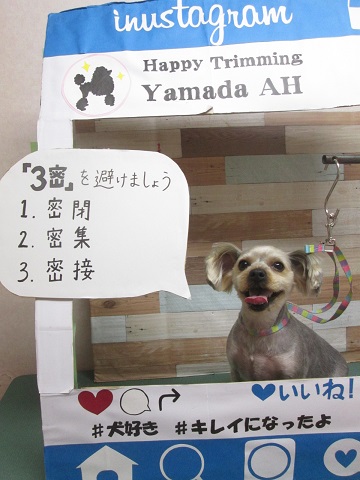 inustagram
Happy Trimming
Yamada AH
『3密』を避けましょう
1. 密閉
2. 密集
3. 密接
いいね!
#犬好き #キレイになったよ